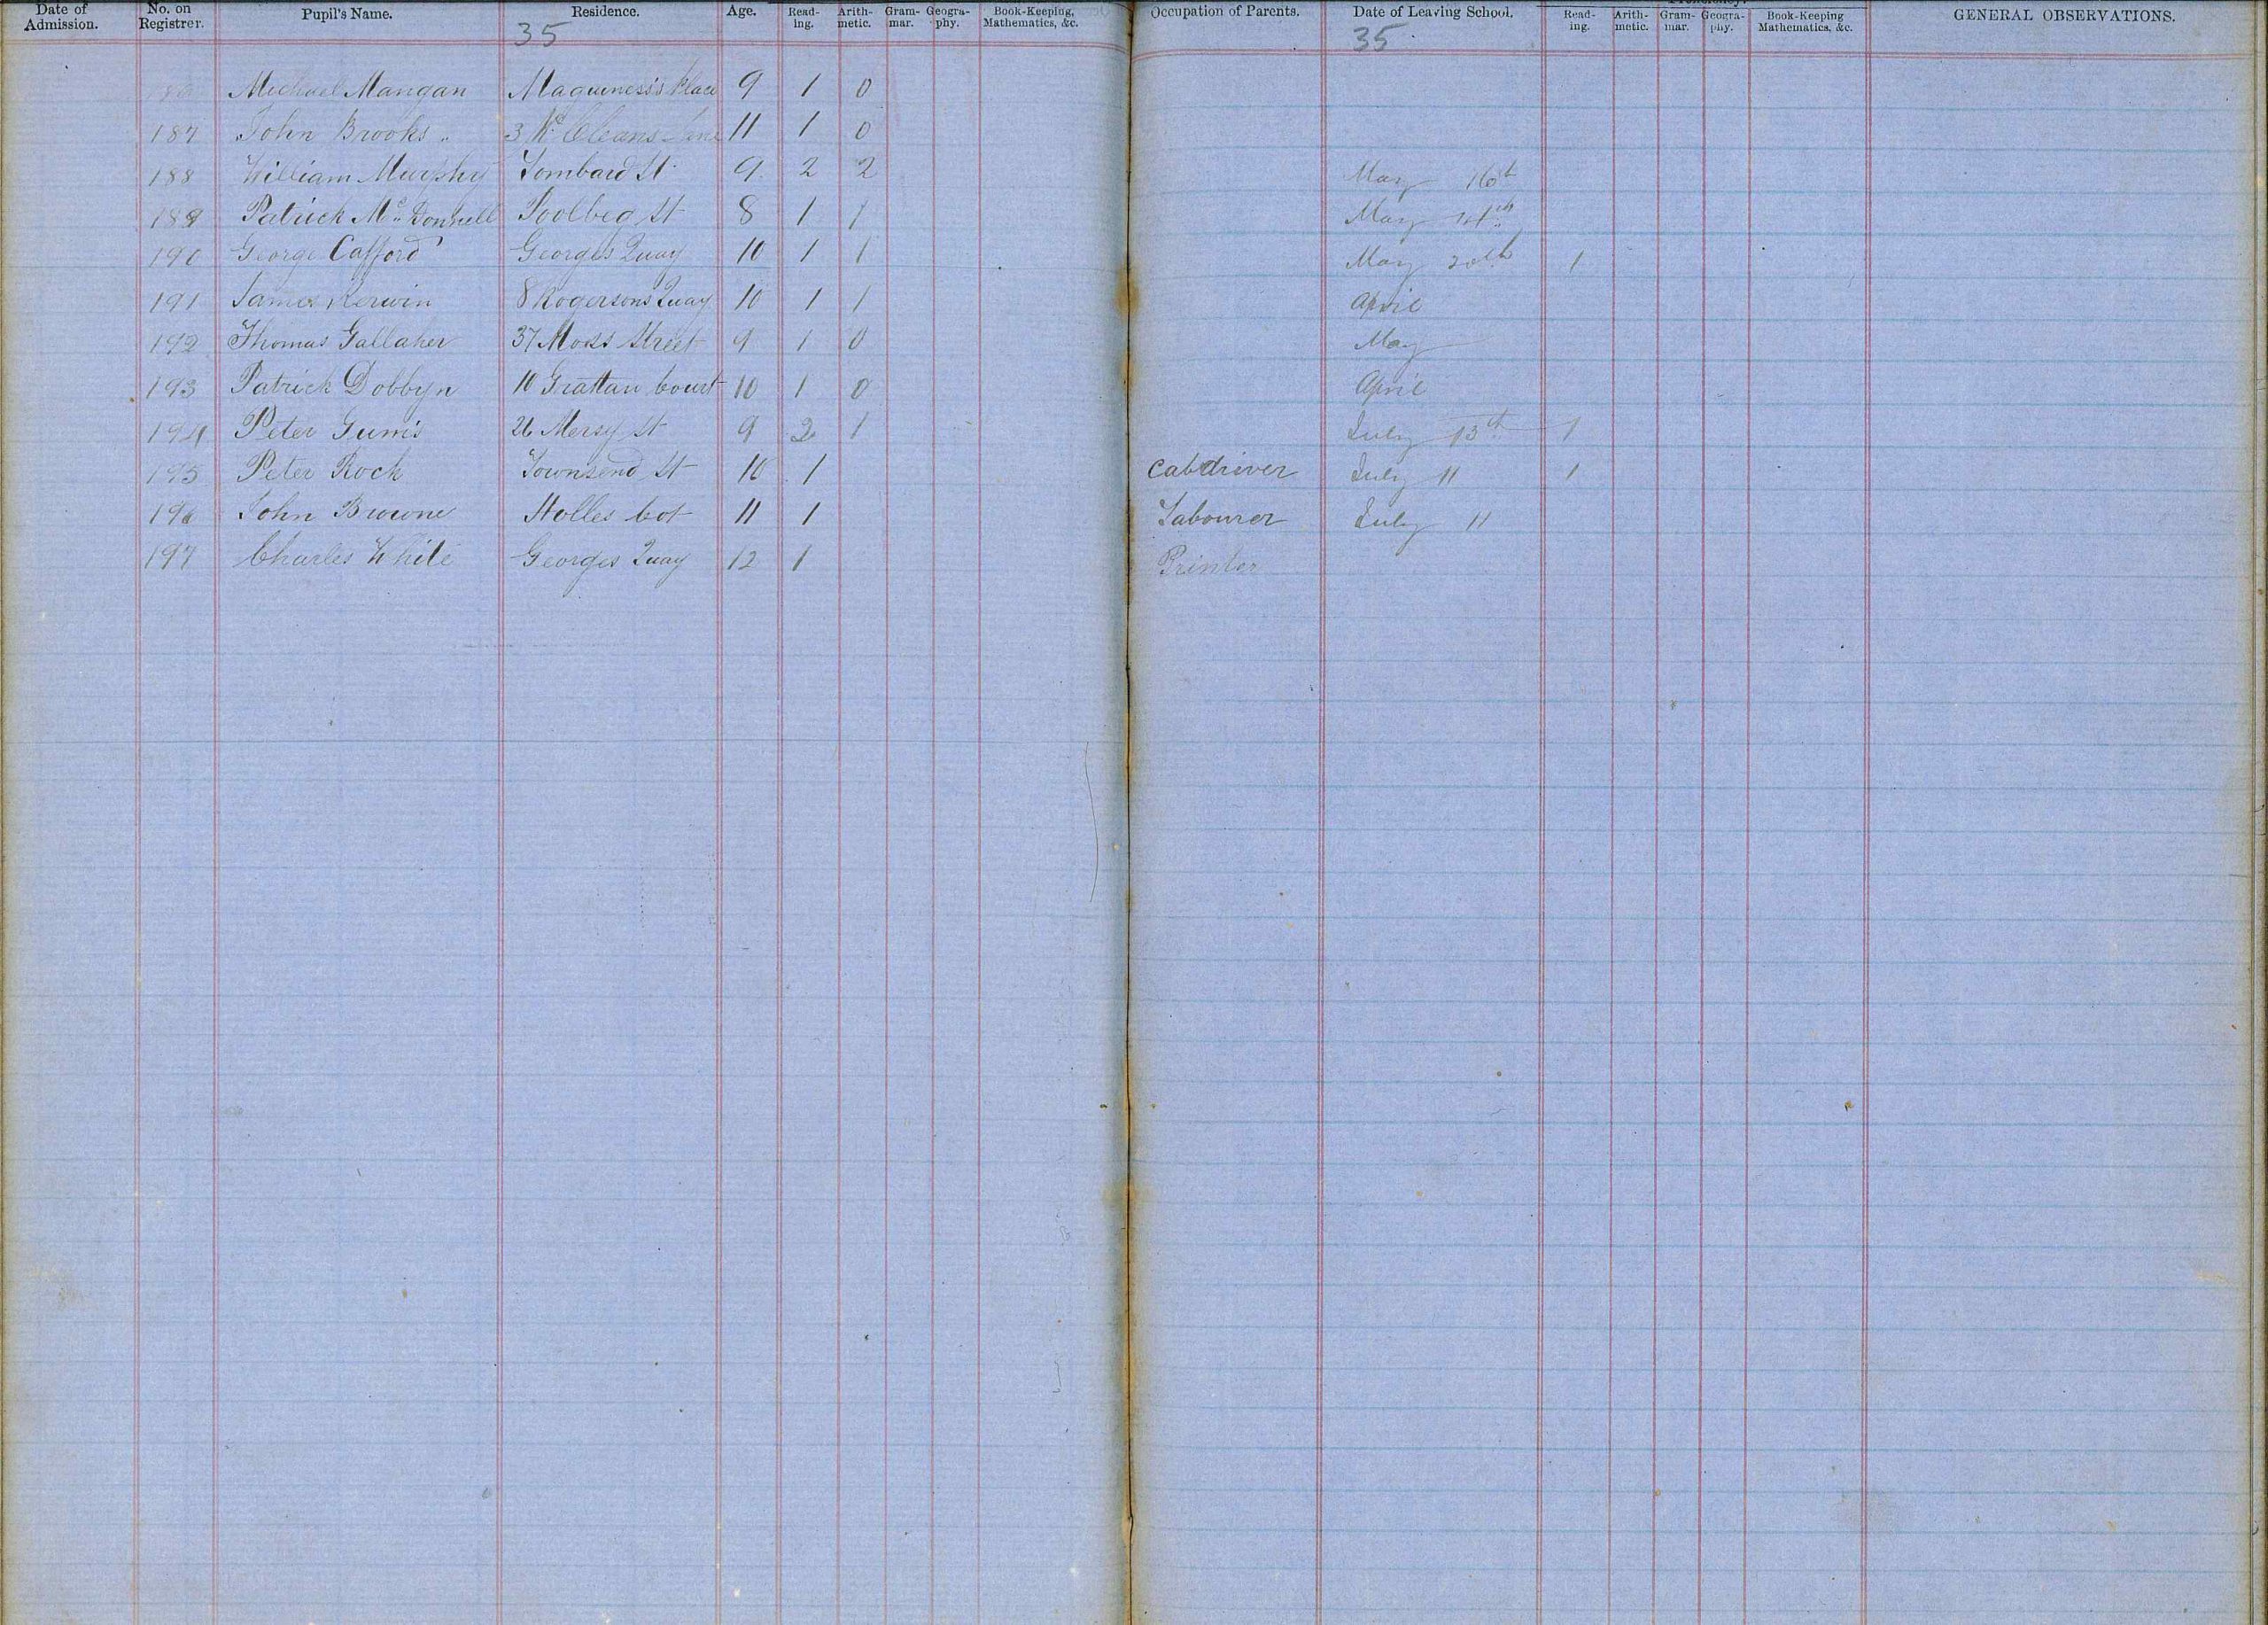 Date of Admission. No. on Registrer. Pupil's Name. Residence. Age. Read-ing. Arith-metic. Gram-mar. Geogra-phy. Book-Keeping, Mathematics, &c. Occupation of Parents. Date of Leaving School. Proficiency. Read-ing. Arith-metic. Gram-mar. Geogra-phy. Book-Keeping Mathematics, &c. GENERAL OBSERVATIONS.
35 35
Michael Mangan Maguiness's Place 9 1 0
187 John Brooks 3 Mc Cleans Lane 11 1 0
188 William Murphy Lombard St 9 2 2 May 16th
189 Patrick Mc Donnell Poolbeg St 8 1 1 May
190 George Cafford Georges Quay 10 1 1 May 20th 1
191 James Kerwin 8 Rogersons Quay 10 1 1 April
192 Thomas Gallaher 37 Moss Street 9 1 0 May
193 Patrick Dobbyn 10 Grattan Court 10 1 0 April
194 Peter 26 Mersey St 9 2 1 July 13th 1
195 Peter Rock Townsend St 10 1 Cabdriver July 11 1
196 John Browne Holles Cot 11 1 Labourer July 11
197 Charles White Georges Quay 12 1 Printer